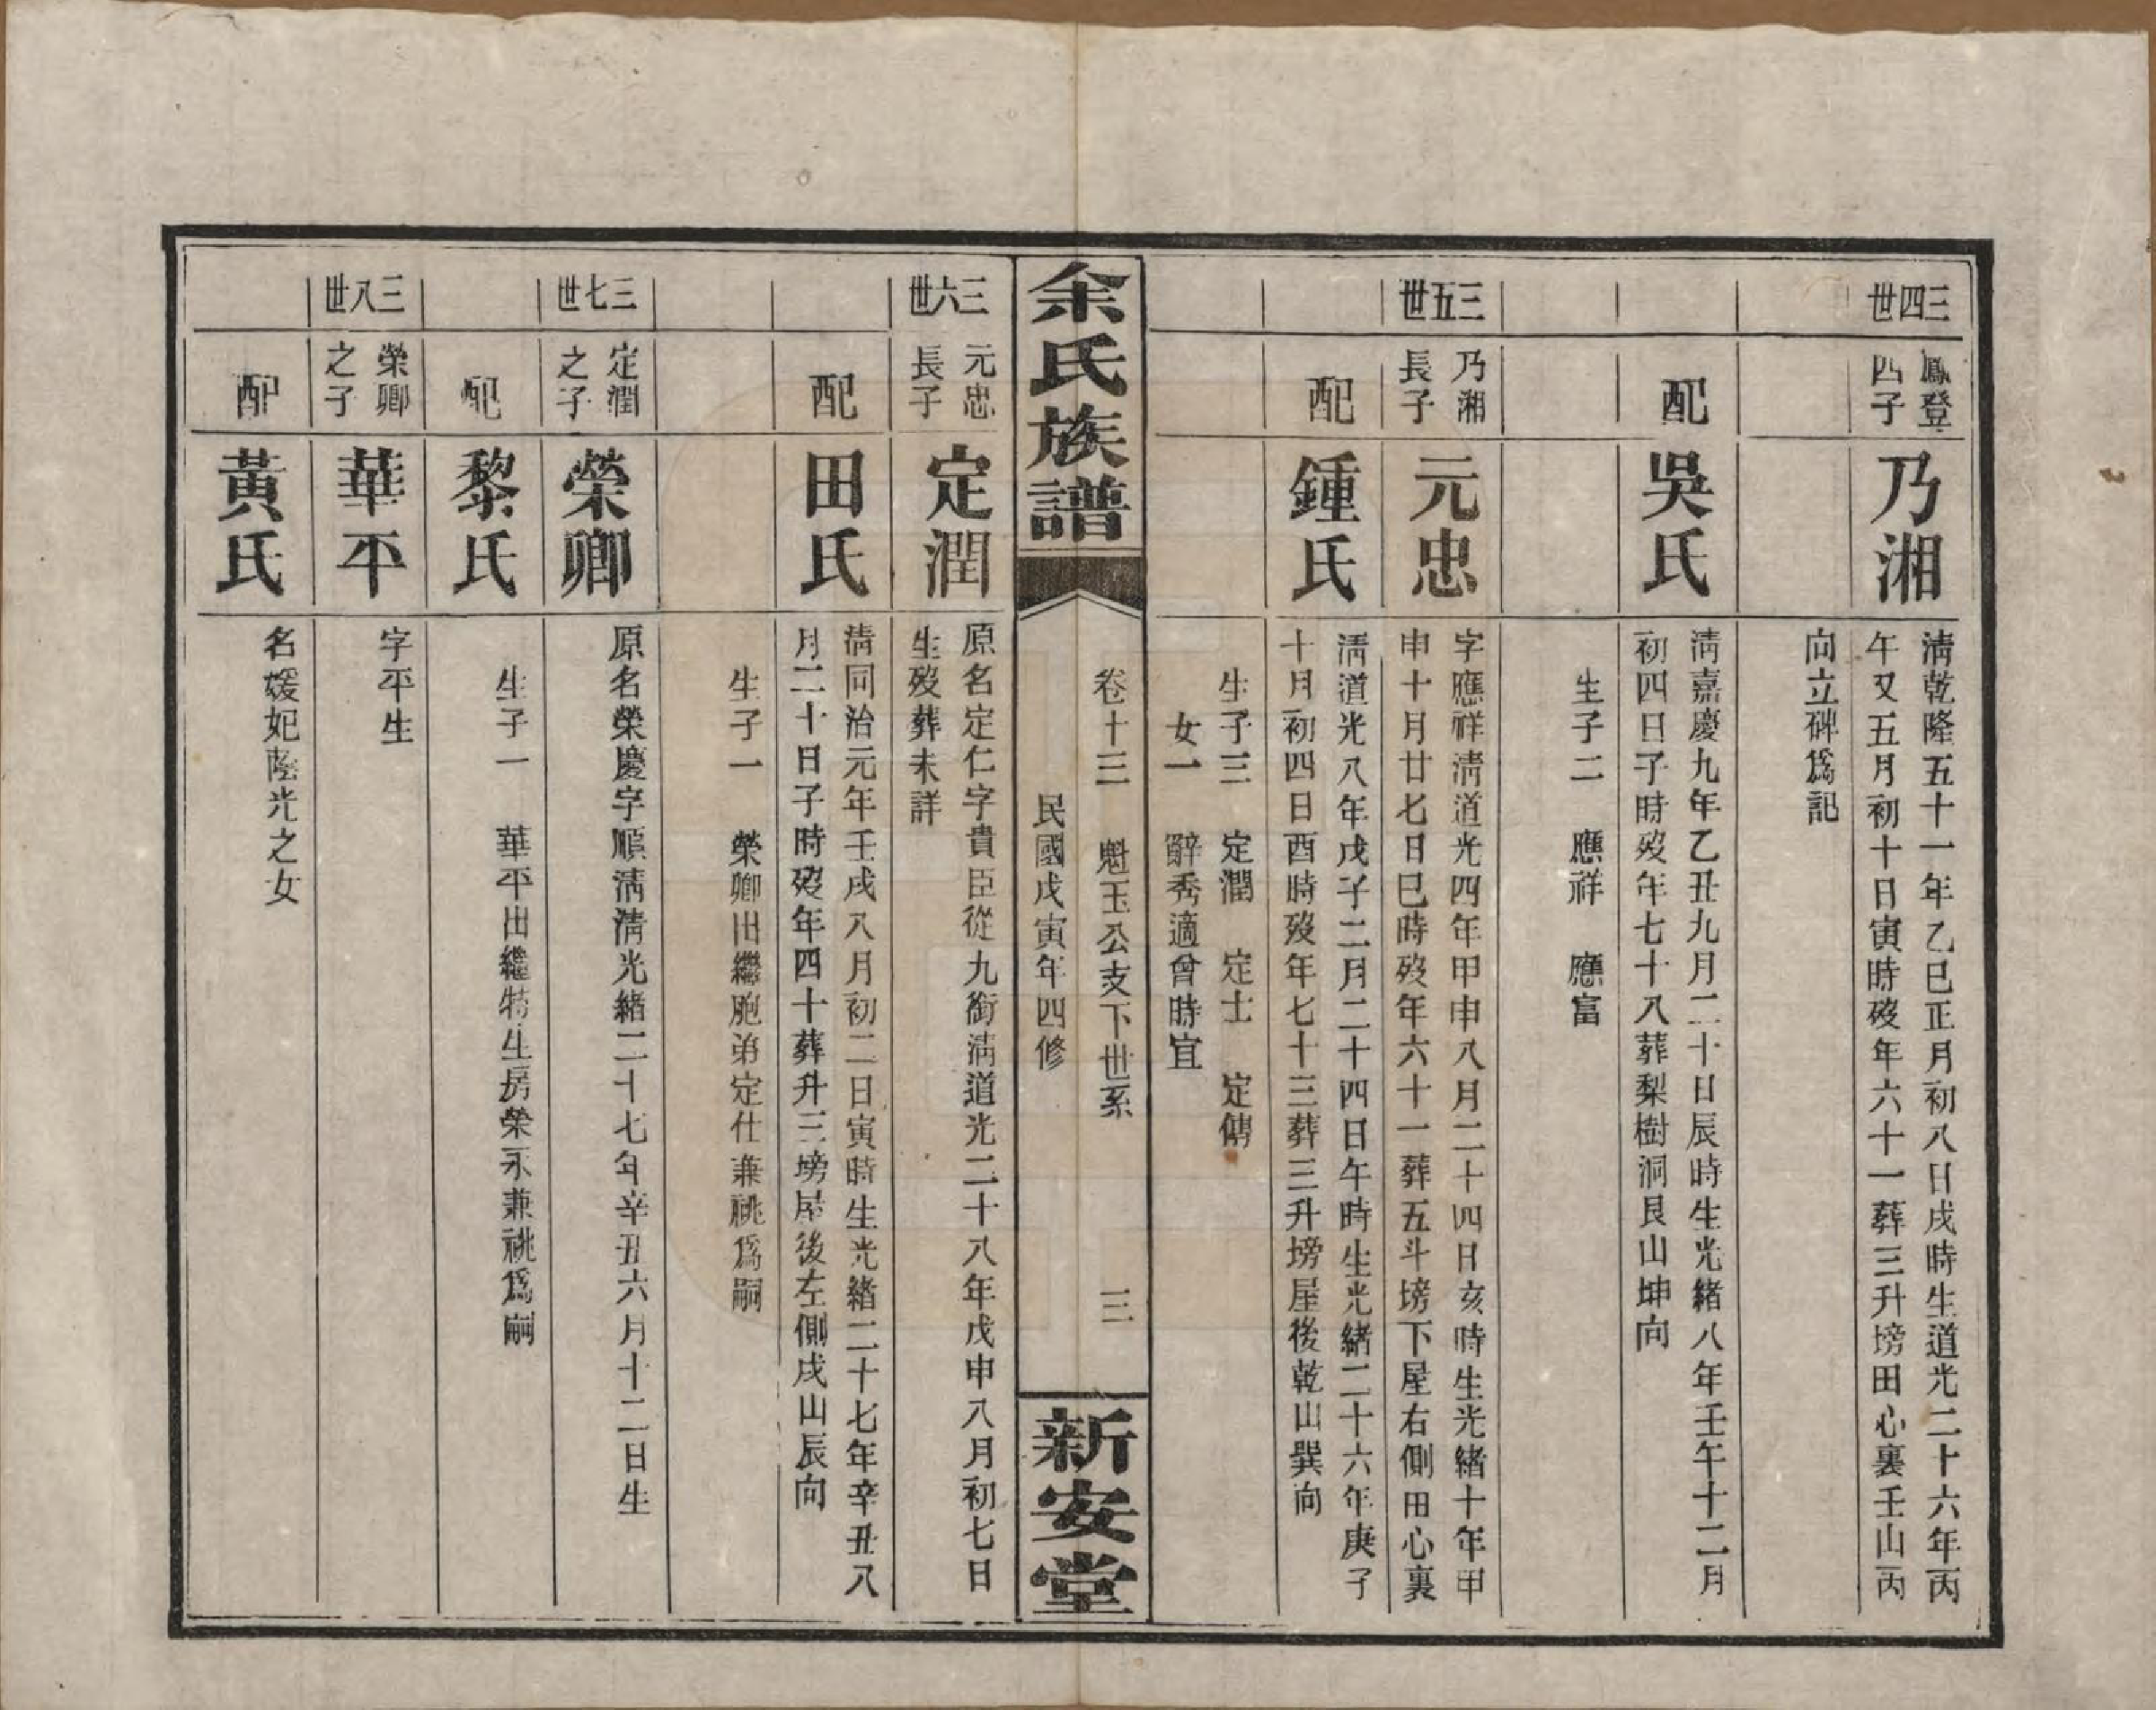 三四世
鳳登
四子
乃湘
淸乾隆五十一年乙巳正月初八日戌時生道光二十六年丙
午又五月初十日寅時歿年六十一葬三升塝田心裏壬山丙
向立碑爲記
配
吳氏
淸嘉慶九年乙丑九月二十日辰時生光緒八年壬午十二月
初四日子時歿年七十八葬梨樹洞艮山坤向
生子二　應祥　應富
三五世
乃湘
長子
元忠
字應祥淸道光四年甲申八月二十四日亥時生光緒十年甲
申十月廿七日巳時歿年六十一葬五斗塝下屋右側田心裏
配
鍾氏
淸道光八年戊子二月二十四日午時生光緒二十六年庚子
十月初四日酉時歿年七十三葬三升塝屋後乾山巽向
生子三　定潤　定士　定儁
女一　辭秀適曾時宜
余氏族譜
卷十三　魁玉公支下世系　三
民國戊寅年四修
新安堂
三六世
元忠
長子
定潤
原名定仁字貴臣從九銜淸道光二十八年戊申八月初七日
生歿葬未詳
配
田氏
淸同治元年壬戌八月初二日寅時生光緒二十七年辛丑八
月二十日子時歿年四十葬升三塝屋後左側戌山辰向
生子一　榮卿出繼胞弟定仕兼祧爲嗣
三七世
定潤
之子
榮卿
原名榮慶字順淸淸光緒二十七年辛丑六月十二日生
配
黎氏
生子一　華平出繼特生房榮永兼祧爲嗣
三八世
榮卿
之子
華平
字平生
配
黃氏
名媛妃蔭光之女